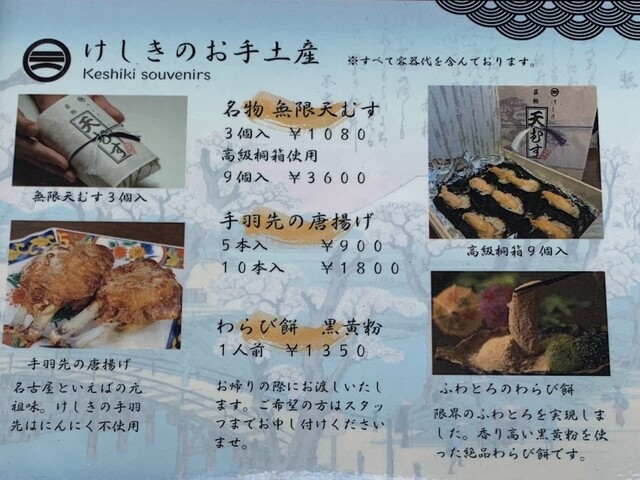 けしきのお手土産
Keshiki souvenirs
※すべて容器代を含んでおります。
名物 無限天むす
3個入 ￥1080
高級桐箱使用
9個入 ￥3600
無限天むす3個入
天むす
天むす
高級桐箱9個入
手羽先の唐揚げ
5本入 ￥900
10本入 ￥1800
わらび餅 黒黄粉
1人前 ￥1350
手羽先の唐揚げ
名古屋といえばの元
祖味。けしきの手羽
先はにんにく不使用
お帰りの際にお渡しいたし
ます。ご希望の方はスタッ
フまでお申し付けください
ませ。
ふわとろのわらび餅
限界のふわとろを実現しま
した。香り高い黒黄粉を使
った絶品わらび餅です。